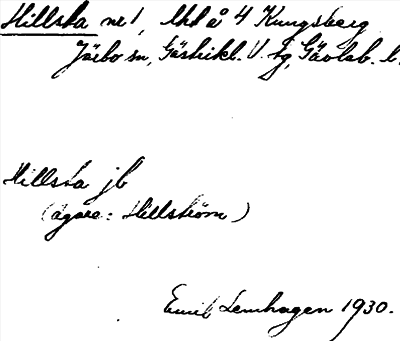 Hillska nr 1, lhl å 4 Kungsberg
Järbo sn, Gästrikl. V. tg, Gävleb. l.
Hillska jb
(ägare: Hillström)
Emil Lemhagen 1930.